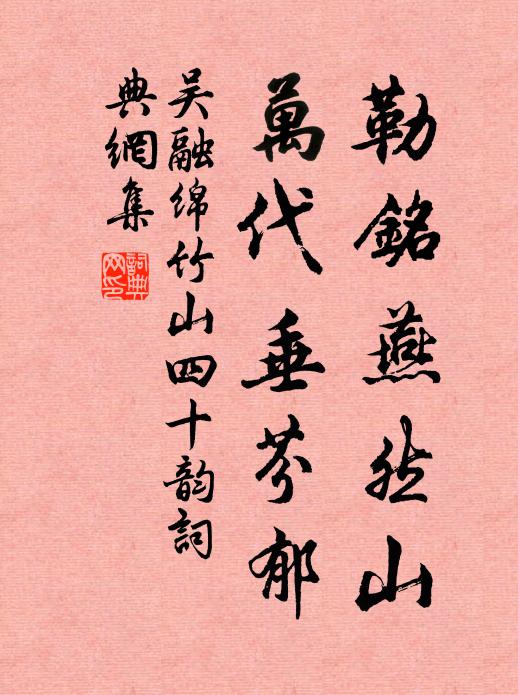 勒銘燕然山
萬代垂芬郁
吴融绵竹山四十韵詞
典網集
詞典网印